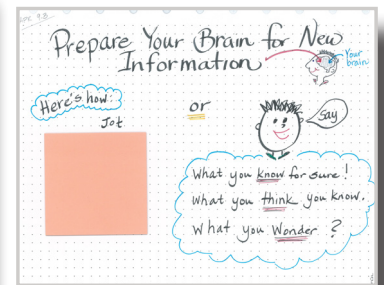 Prepare Your Brain for New
Information
Your
brain
Here's how:
Jot
or
Say
What you know for sure!
What you think you know.
What you Wonder?